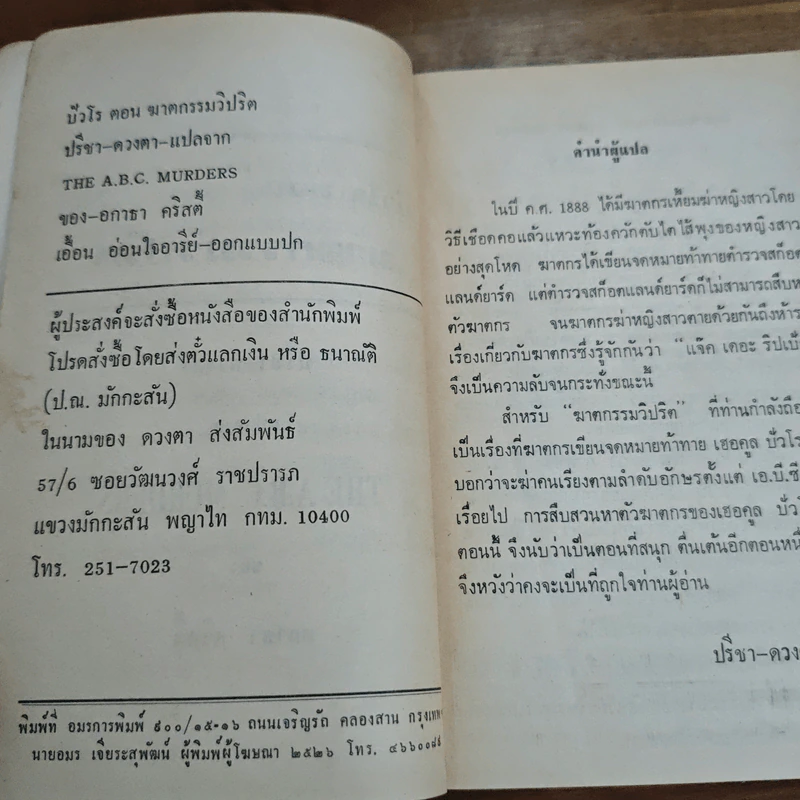 บัวโร ตอน ฆาตกรรมวิปริต
ปรีชา-ดวงตา-แปลจาก
THE A.B.C. MURDERS
ของ-อกาธา คริสตี้
เอื้อน อ่อนใจอารีย์-ออกแบบปก
ผู้ประสงค์จะสั่งซื้อหนังสือของสำนักพิมพ์
โปรดสั่งซื้อโดยส่งตั๋วแลกเงิน หรือ ธนาณัติ
(ป.ณ. มักกะสัน)
ในนามของ ดวงตา ส่งสัมพันธ์
57/6 ซอยวัฒนวงศ์ ราชปรารภ
แขวงมักกะสัน พญาไท กทม. 10400
โทร. 251-7023
พิมพ์ที่ อมรการพิมพ์ ๙๐๐/๑๕-๑๖ ถนนเจริญรัถ คลองสาน กรุงเทพ
นายอมร เจียระสุพัฒน์ ผู้พิมพ์ผู้โฆษณา ๒๕๒๖ โทร.
คำนำผู้แปล
ในปี ค.ศ. 1888 ได้มีฆาตกรเหี้ยมฆ่าหญิงสาวโดย
วิธีเชือดคอแล้วแหวะท้องควักตับไตไส้พุงของหญิงสาว
อย่างสุดโหด ฆาตกรได้เขียนจดหมายท้าทายตำรวจสก็อต
แลนด์ยาร์ด แต่ตำรวจสก็อตแลนด์ยาร์ดก็ไม่สามารถสืบห
ตัวฆาตกร จนฆาตกรฆ่าหญิงสาวตายด้วยกันถึงห้าร
เรื่องเกี่ยวกับฆาตกรซึ่งรู้จักกันว่า "แจ๊ค เดอะ ริปเป
จึงเป็นความลับจนกระทั่งขณะนี้
สำหรับ "ฆาตกรรมวิปริต" ที่ท่านกำลังถือ
เป็นเรื่องที่ฆาตกรเขียนจดหมายท้าทาย เฮอคูล บัวโร
บอกว่าจะฆ่าคนเรียงตามลำดับอักษรตั้งแต่ เอ.บี.ซี
เรื่อยไป การสืบสวนหาตัวฆาตกรของเฮอคูล บัว
ตอนนี้ จึงนับว่าเป็นตอนที่สนุก ตื่นเต้นอีกตอนหนึ่
จึงหวังว่าคงจะเป็นที่ถูกใจท่านผู้อ่าน
ปรีชา-ดวง